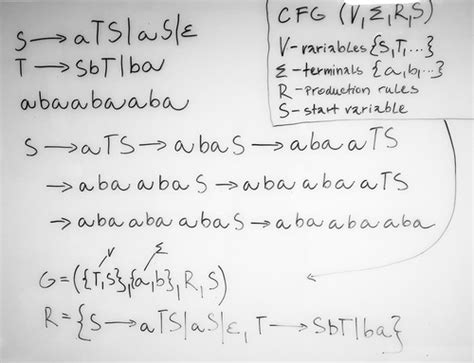 S → aTS|aS|ε
T → SbT|ba
abaabaaba
CFG (V,Σ,R,S)
V-variables {S,T,...}
Σ-terminals {a,b,...}
R-production rules
S-start variable
S → aTS → abaS → abaaTS
→ abaabaS → abaabaaTS
→ abaabaabaS → abaabaaba
V Σ
G=({T,S},{a,b},R,S)
R={S → aTS|aS|ε, T → SbT|ba}